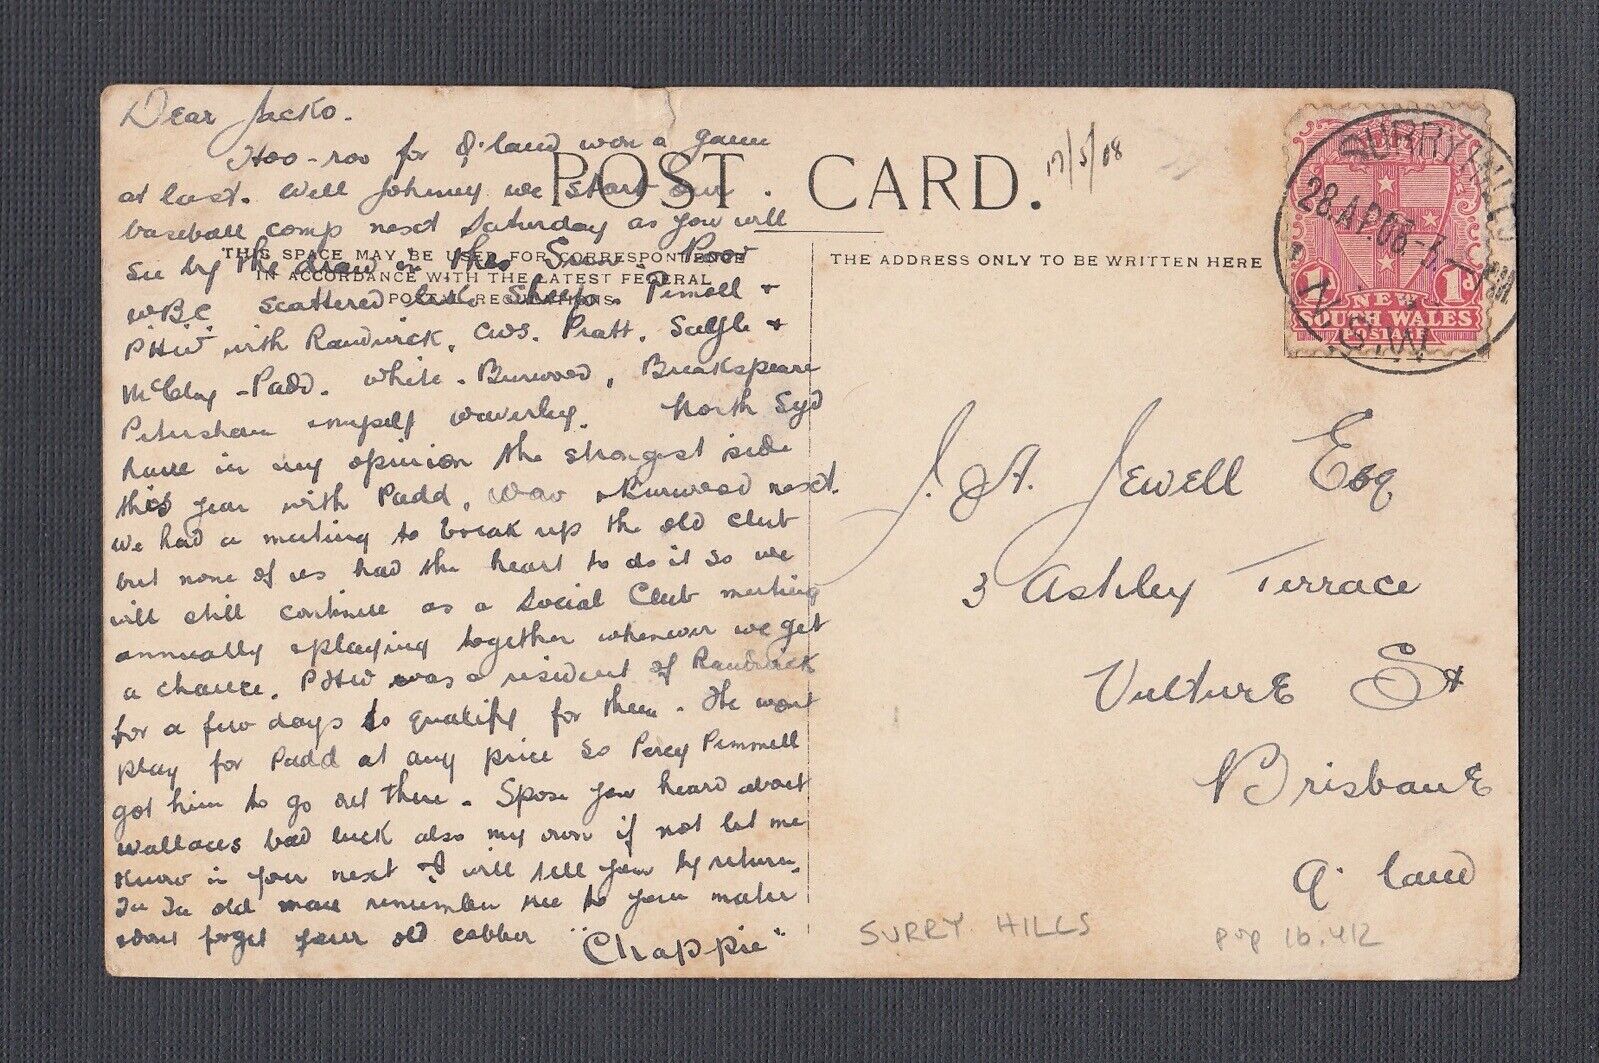 Dear Jacko.
Hoo-roo for Q'land won a game
at last. Well Johnny we start our
baseball comp next Saturday as you will
see by the draw in the Sun. Poor
WBC scattered like sheep. Pimell +
PHW with Randwick, CWS. Pratt,
McClay - Padd. White - Burwood, Breakspeare
Petersham + myself Waverley. North Syd
have in my opinion the strongest side
this year with Padd, Wav + Burwood next.
We had a meeting to break up the old club
but none of us had the heart to do it so we
will still continue as a Social Club meeting
annually + playing together whenever we get
a chance. PHW was a resident of Randwick
for a few days to qualify for them. He wont
play for Padd at any price so Percy Pimmell
got him to go out there. Spose you heard about
Wallaces bad luck also my own if not let me
know in your next + I will tell you by return.
Ta Ta old man remember me to your mater
+ dont forget your old cobber "Chappie"
POST CARD.
17/5/08
THIS SPACE MAY BE USED FOR CORRESPONDENCE
IN ACCORDANCE WITH THE LATEST FEDERAL
POSTAL REGULATIONS.
THE ADDRESS ONLY TO BE WRITTEN HERE
SURRY HILLS
28.AP.08-3.
N.S.W
1d NEW 1d
SOUTH WALES
POSTAGE
J. A. Jewell Esq
3 Ashley Terrace
Vulture St
Brisbane
Q'land
SURRY HILLS
pop 16.412